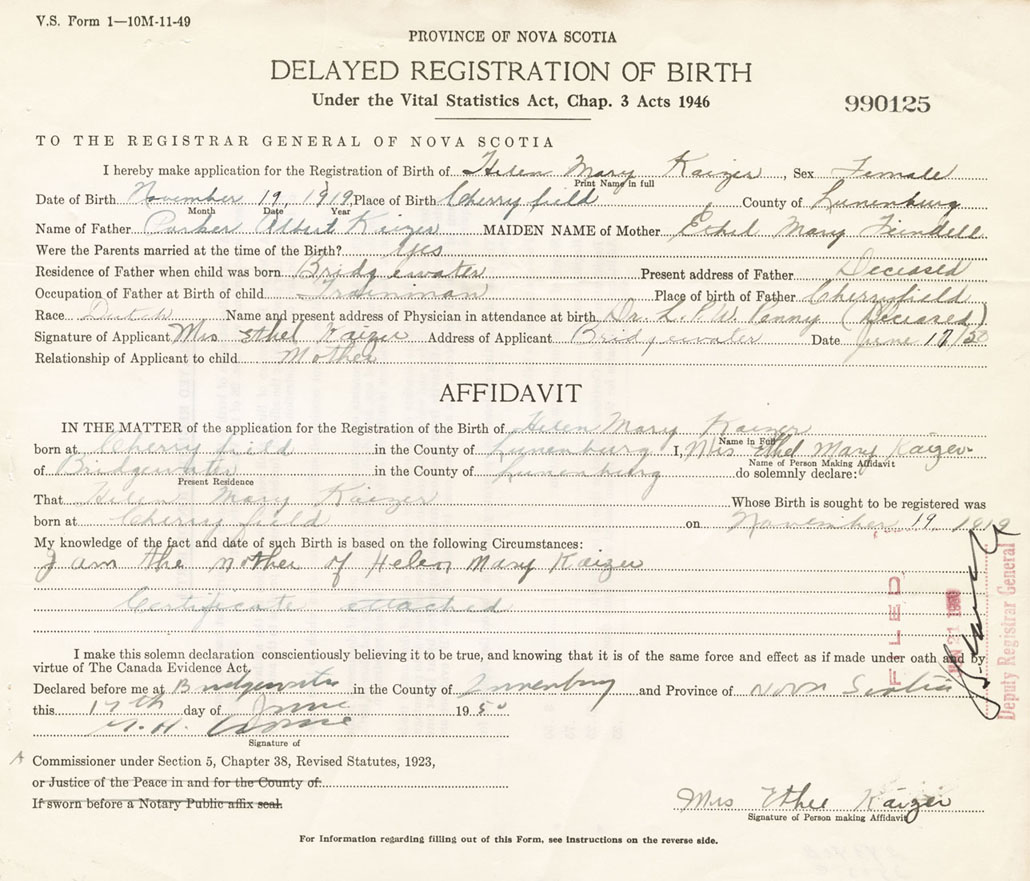 V.S. Form 1—10M-11-49
PROVINCE OF NOVA SCOTIA
DELAYED REGISTRATION OF BIRTH
Under the Vital Statistics Act, Chap. 3 Acts 1946
990125
TO THE REGISTRAR GENERAL OF NOVA SCOTIA
I hereby make application for the Registration of Birth of Helen Mary Kaizer, Sex Female
Print Name in full
Date of Birth November 19, 1919, Place of Birth Cherryfield County of Lunenburg
Month Date Year
Name of Father Parker Albert Kaizer MAIDEN NAME of Mother Ethel Mary Feindell
Were the Parents married at the time of the Birth? Yes
Residence of Father when child was born Bridgewater Present address of Father Deceased
Occupation of Father at Birth of child Trainman Place of birth of Father Cherryfield
Race Dutch Name and present address of Physician in attendance at birth Dr. L. P. W. Penny (Deceased)
Signature of Applicant Mrs Ethel Kaizer Address of Applicant Bridgewater Date June 17/50
Relationship of Applicant to child Mother
AFFIDAVIT
IN THE MATTER of the application for the Registration of the Birth of Helen Mary Kaizer
Name in Full
born at Cherryfield in the County of Lunenburg I, Mrs Ethel Mary Kaizer
Name of Person Making Affidavit
of Bridgewater in the County of Lunenburg do solemnly declare:
Present Residence
That Helen Mary Kaizer Whose Birth is sought to be registered was
born at Cherryfield on November 19 1919
My knowledge of the fact and date of such Birth is based on the following Circumstances:
I am the mother of Helen Mary Kaizer
Certificate attached
I make this solemn declaration conscientiously believing it to be true, and knowing that it is of the same force and effect as if made under oath and by
virtue of The Canada Evidence Act.
Declared before me at Bridgewater in the County of Lunenburg and Province of Nova Scotia
this 17th day of June 1950
Signature of
A Commissioner under Section 5, Chapter 38, Revised Statutes, 1923,
or Justice of the Peace in and for the County of:
If sworn before a Notary Public affix seal.
Mrs Ethel Kaizer
Signature of Person making Affidavit
For Information regarding filling out of this Form, see instructions on the reverse side.
FILED
Deputy Registrar General